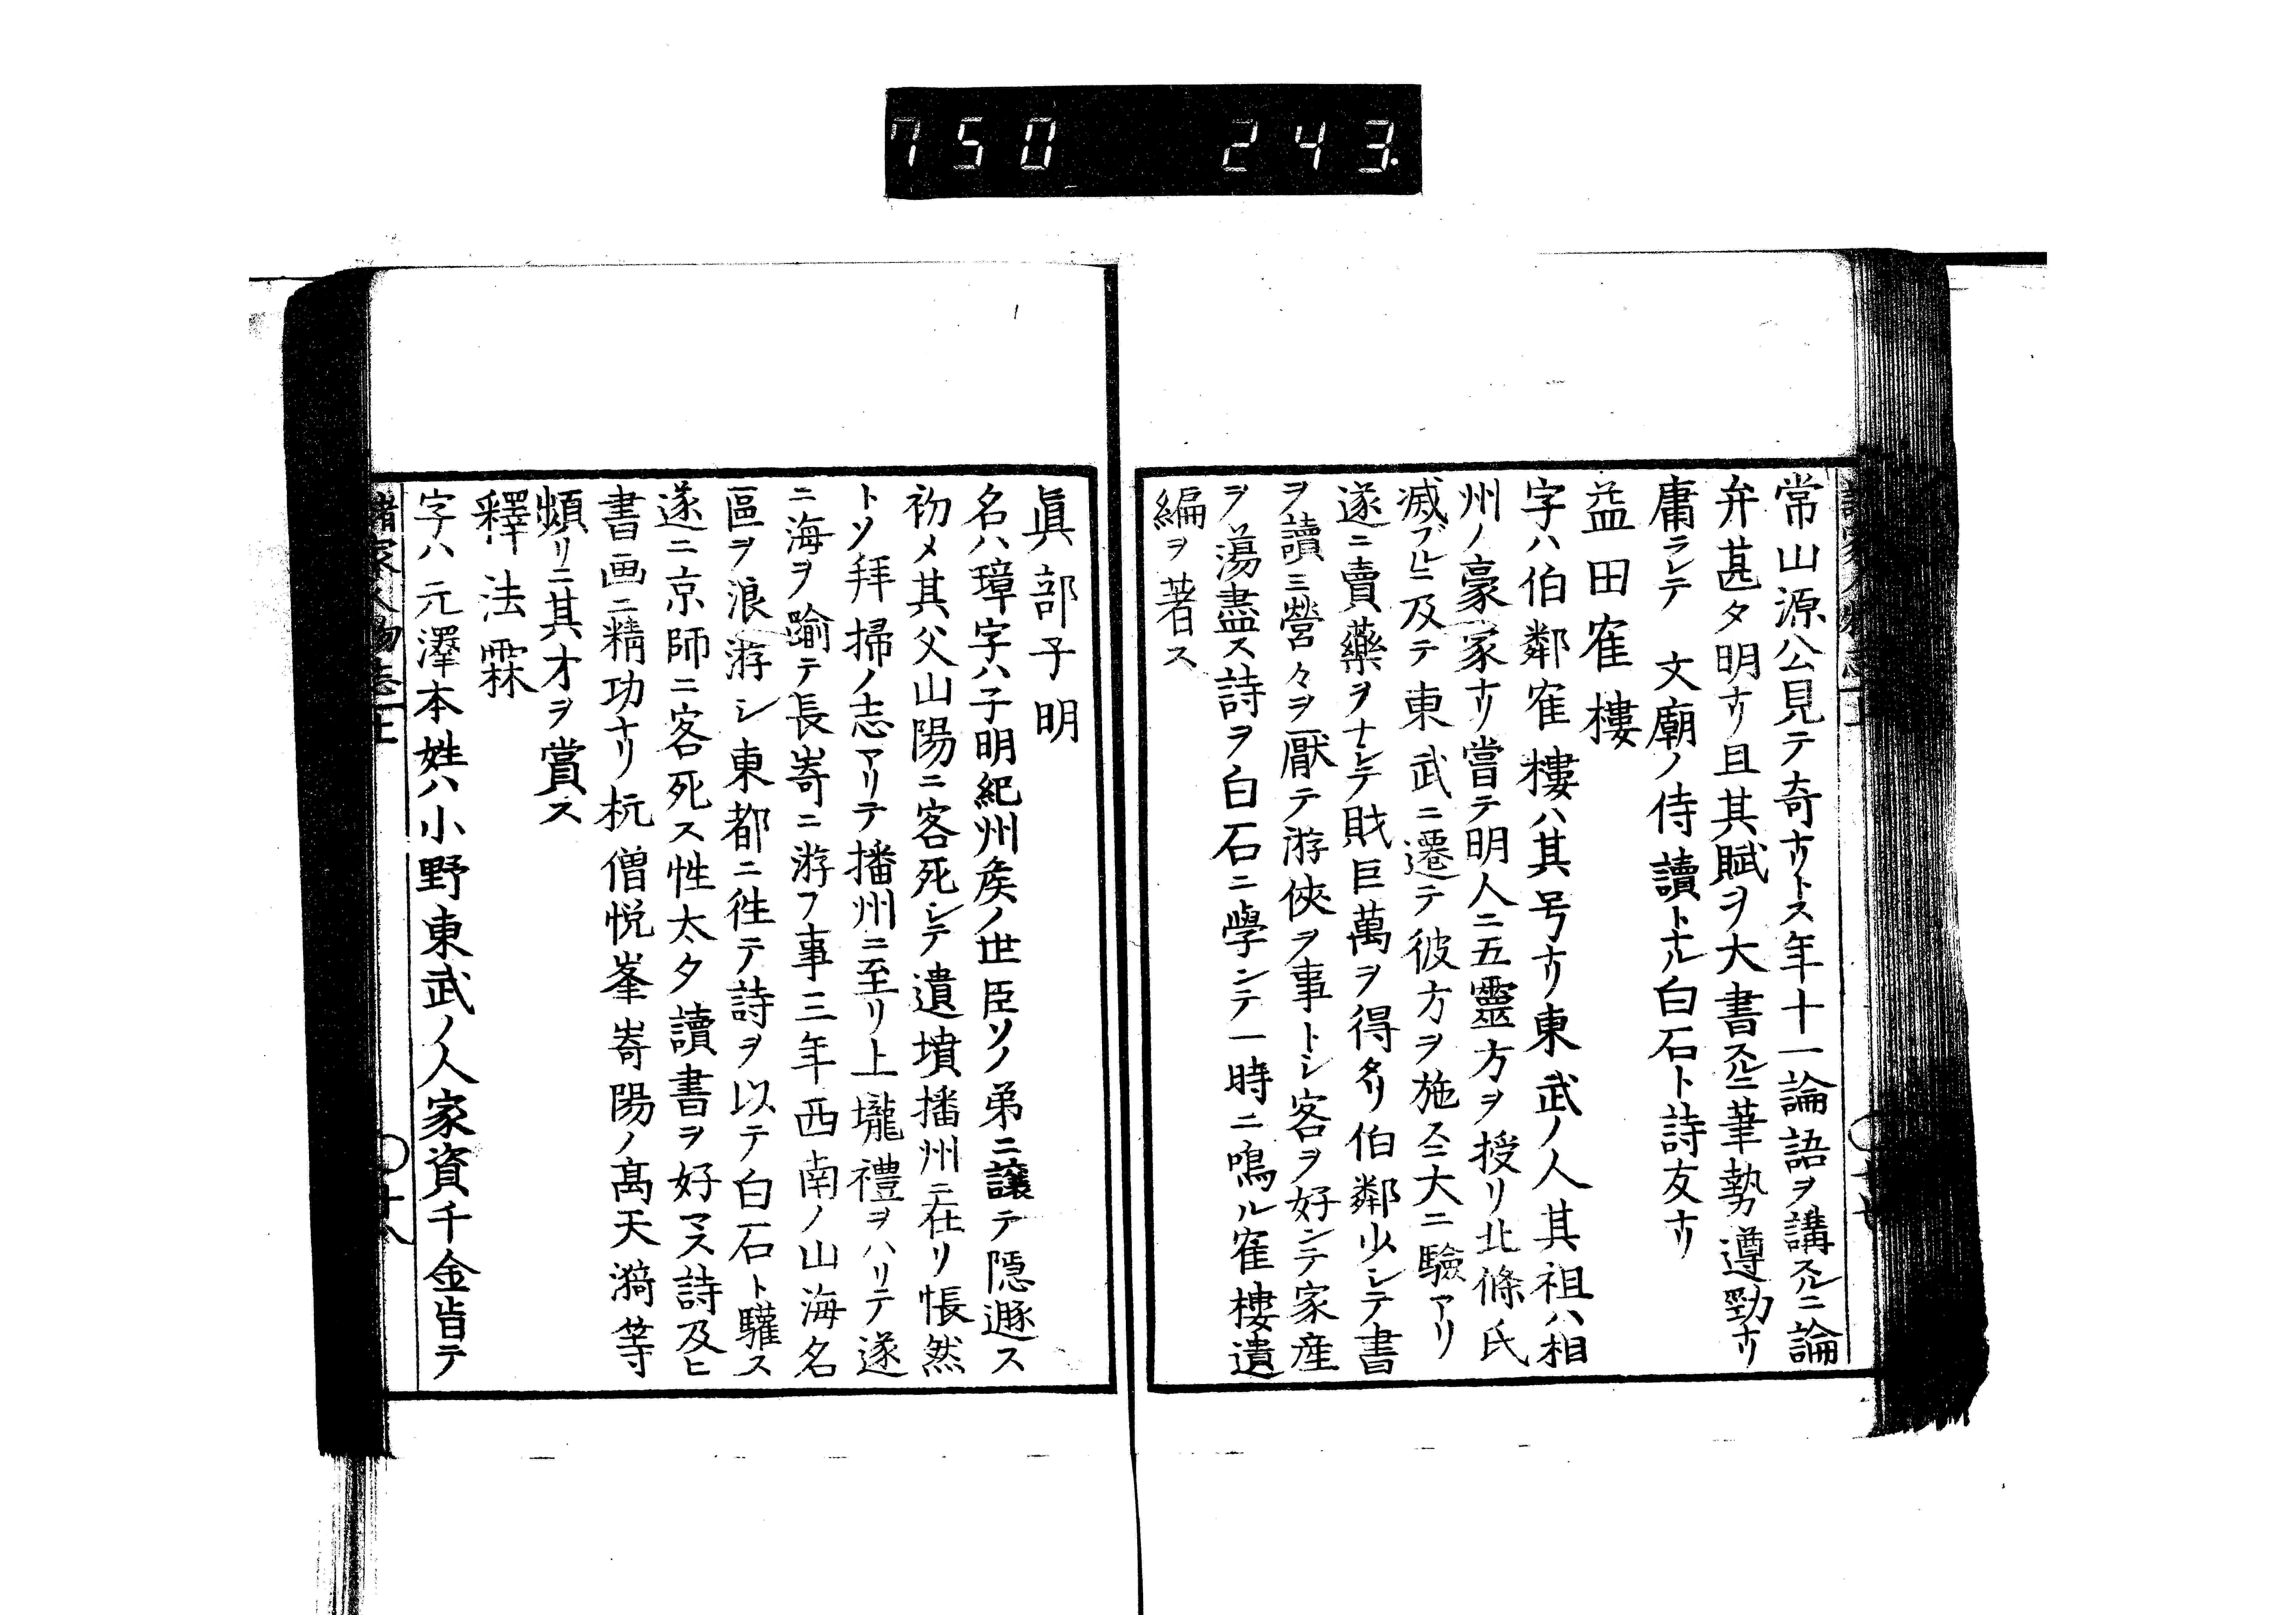 750 243.
常山源公見テ奇ナリトス年十一論語ヲ講スルニ論
弁甚タ明ナリ且其賦ヲ大書スルニ筆勢遒勁ナリ
庸ラレテ 文廟ノ侍讀トナル白石ト詩友ナリ
益田隺樓
字ハ伯鄰隺樓ハ其号ナリ東武ノ人其祖ハ相
州ノ豪家ナリ嘗テ明人ニ五靈方ヲ授リ北條氏
滅ブルニ及テ東武ニ遷テ彼方ヲ施スニ大ニ驗アリ
遂ニ賣藥ヲナシテ貲巨萬ヲ得タリ伯鄰少シテ書
ヲ讀ミ營々ヲ厭テ游俠ヲ事トシ客ヲ好ンテ家産
ヲ蕩盡ス詩ヲ白石ニ學ンテ一時ニ鳴ル隺樓遺
編ヲ著ス
眞部子明
名ハ璋字ハ子明紀州矦ノ世臣ソノ弟ニ讓テ隱遯ス
初メ其父山陽ニ客死シテ遺墳播州ニ在リ悵然
トソ拜掃ノ志アリテ播州ニ至リ上壠禮ヲハリテ遂
ニ海ヲ踰テ長嵜ニ游フ事三年西南ノ山海名
區ヲ浪游シ東都ニ徃テ詩ヲ以テ白石ト驩ス
遂ニ京師ニ客死ス性太タ讀書ヲ好マス詩及ヒ
書画ニ精功ナリ杭僧悦峯嵜陽ノ髙天漪等
頻リニ其才ヲ賞ス
釋法霖
字ハ元澤本姓ハ小野東武ノ人家資千金皆テ
諸家人物志上 〇廿八